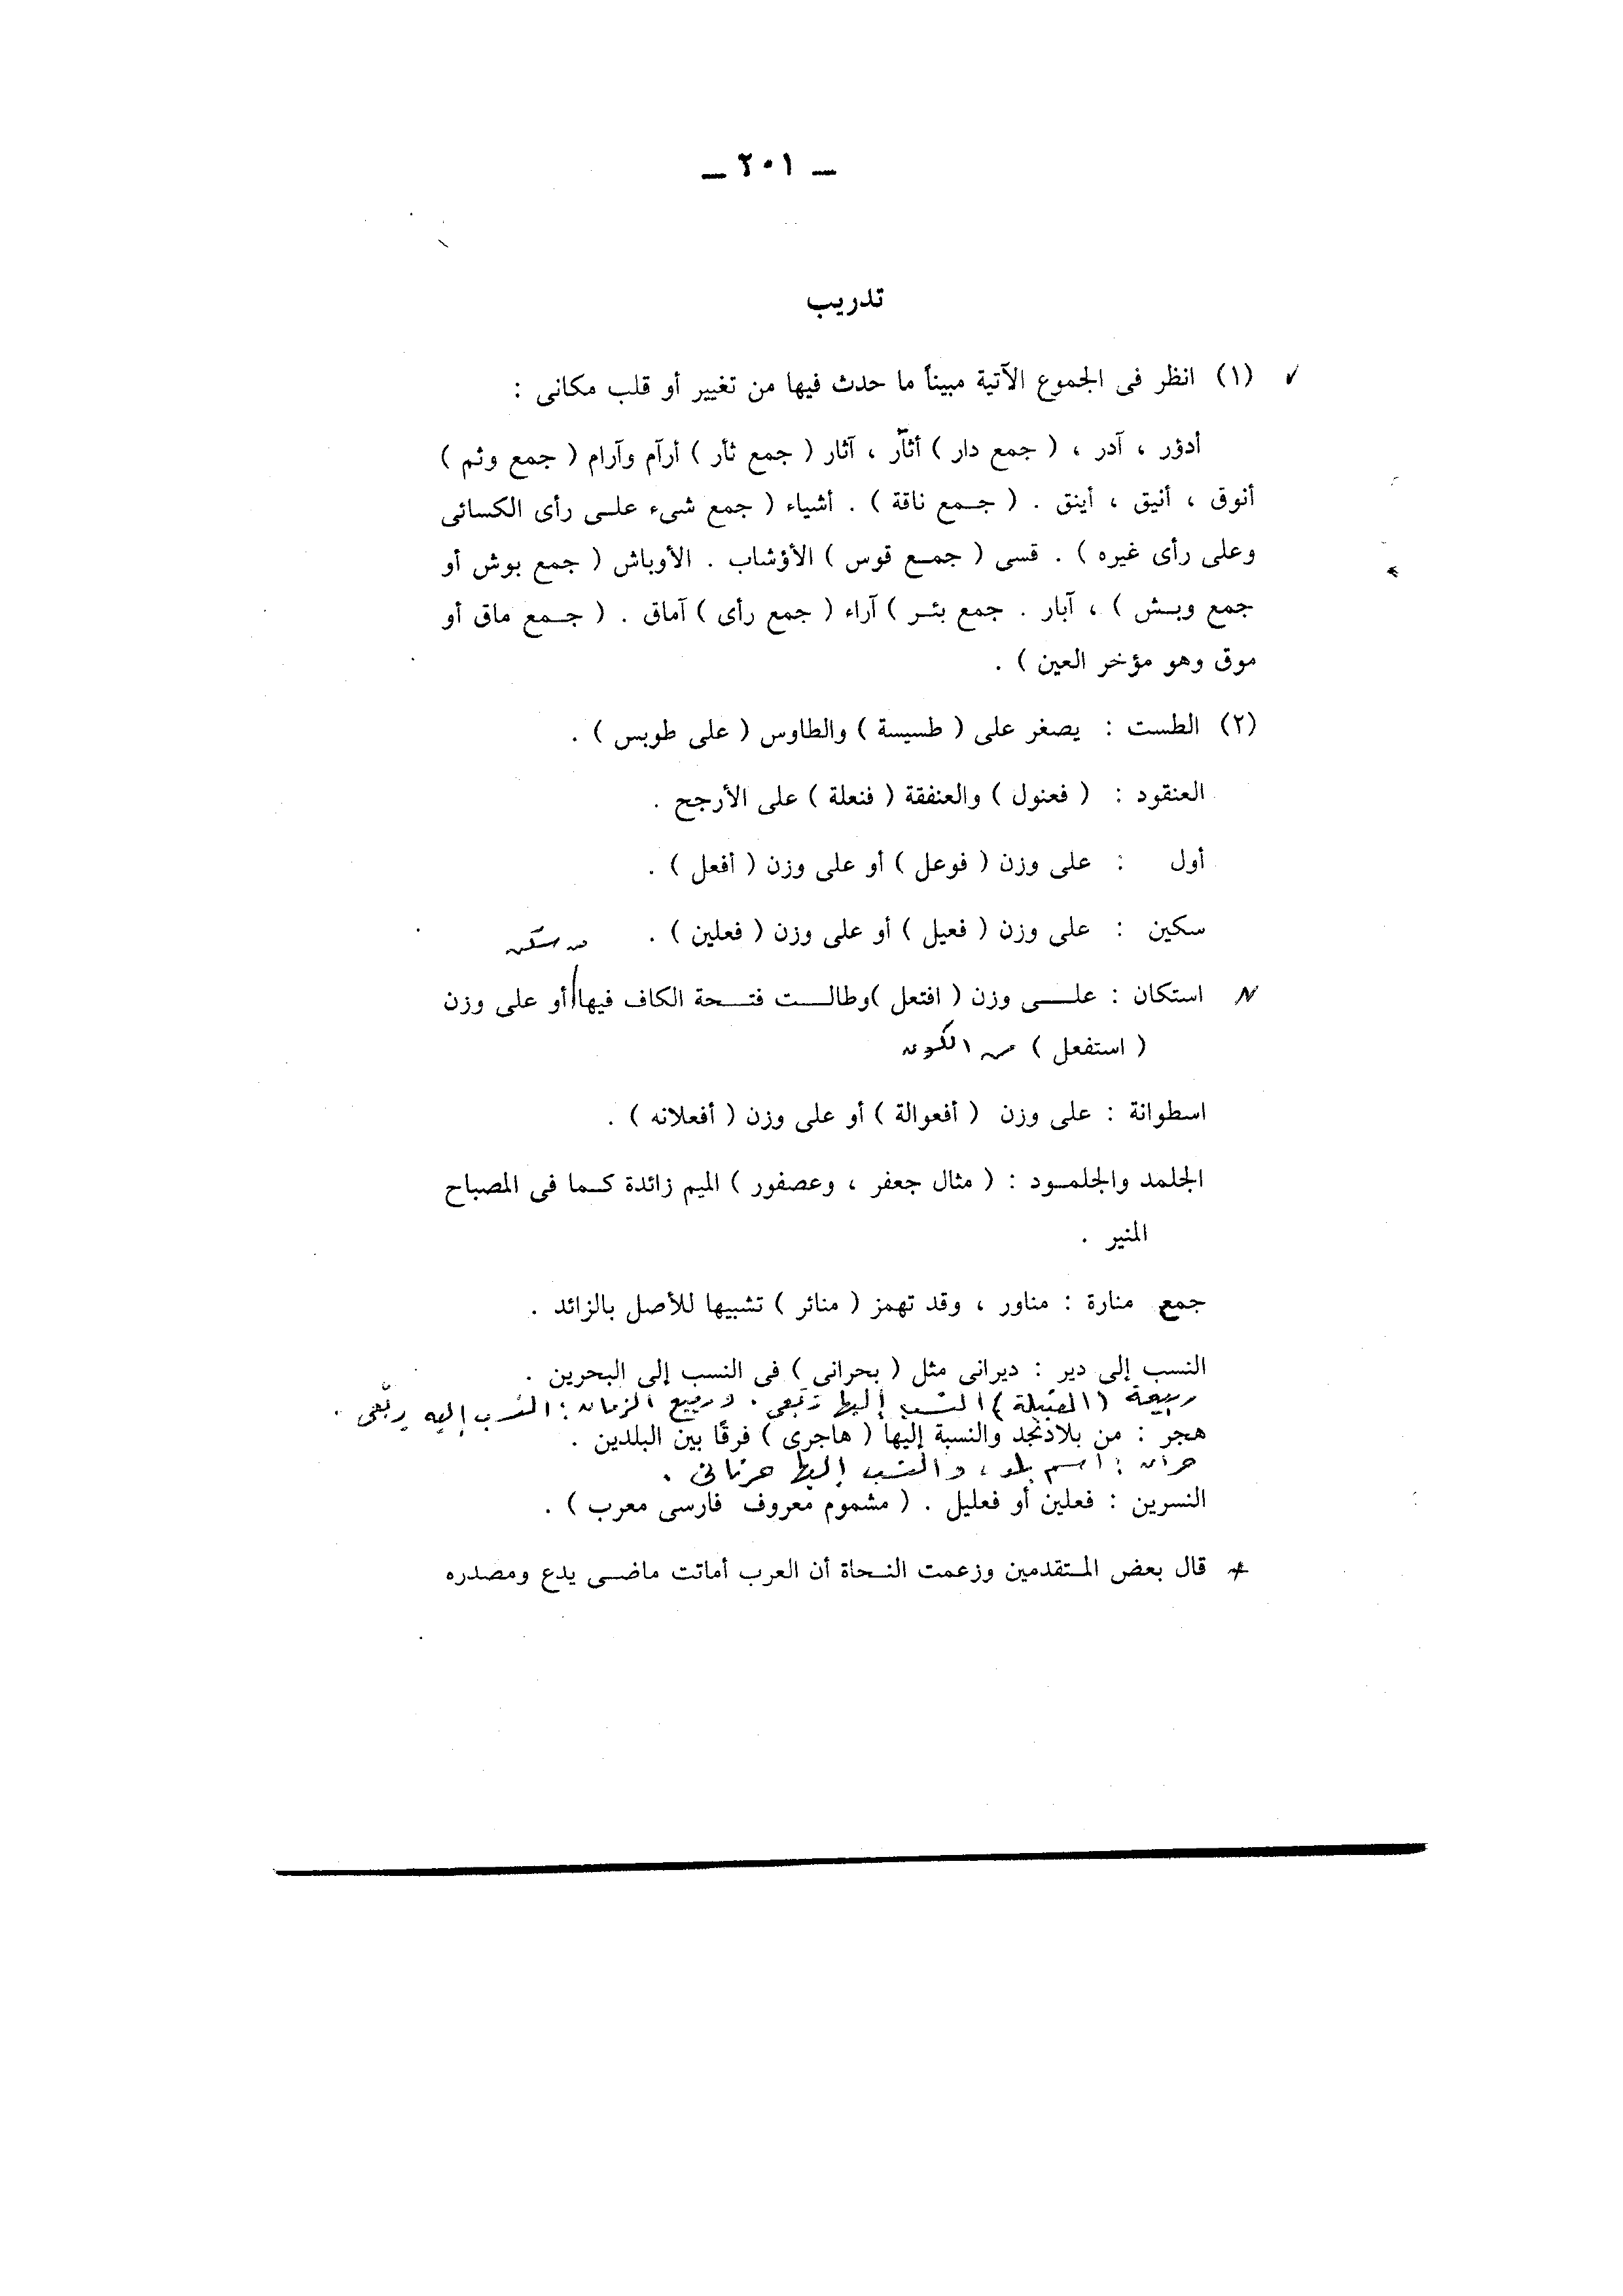 ــ ٢٠١ ــ
تدريب
(١) انظر فى الجموع الآتية مبيناً ما حدث فيها من تغيير أو قلب مكانى :
أدؤر ، آدر ، ( جمع دار ) أثآر ، آثار ( جمع ثأر ) أرآم وآرام ( جمع وثم )
أنوق ، أنيق ، أينق . ( جمع ناقة ) . أشياء ( جمع شىء على رأى الكسائى
وعلى رأى غيره ) . قسى ( جمع قوس ) الأؤشاب . الأوباش ( جمع بوش أو
جمع وبش ) ، آبار . جمع بئر ) آراء ( جمع رأى ) آماق . ( جمع ماق أو
موق وهو مؤخر العين ) .
(٢) الطست : يصغر على ( طسيسة ) والطاوس ( على طوبس ) .
العنقود : ( فعنول ) والعنفقة ( فنعلة ) على الأرجح .
أول : على وزن ( فوعل ) أو على وزن ( أفعل ) .
سكين : على وزن ( فعيل ) أو على وزن ( فعلين ) .
استكان : على وزن ( افتعل )وطالت فتحة الكاف فيها/أو على وزن من سكن
( استفعل ) من الكون
اسطوانة : على وزن ( أفعوالة ) أو على وزن ( أفعلانه ) .
الجلمد والجلمود : ( مثال جعفر ، وعصفور ) الميم زائدة كما فى المصباح
المنير .
جمع منارة : مناور ، وقد تهمز ( منائر ) تشبيها للأصل بالزائد .
النسب إلى دير : ديرانى مثل ( بحرانى ) فى النسب إلى البحرين .
ربيعة ( القبيلة ) النسب إليها رَبَعى . وربيع الزمان : النسب إليه رِبْعى .
هجر : من بلاد نجد والنسبة إليها ( هاجرى ) فرقًا بين البلدين .
حران : اسم بلد ، والنسب إليها حرنانى .
النسرين : فعلين أو فعليل . ( مشموم معروف فارسى معرب ) .
* قال بعض المتقدمين وزعمت النحاة أن العرب أماتت ماضى يدع ومصدره